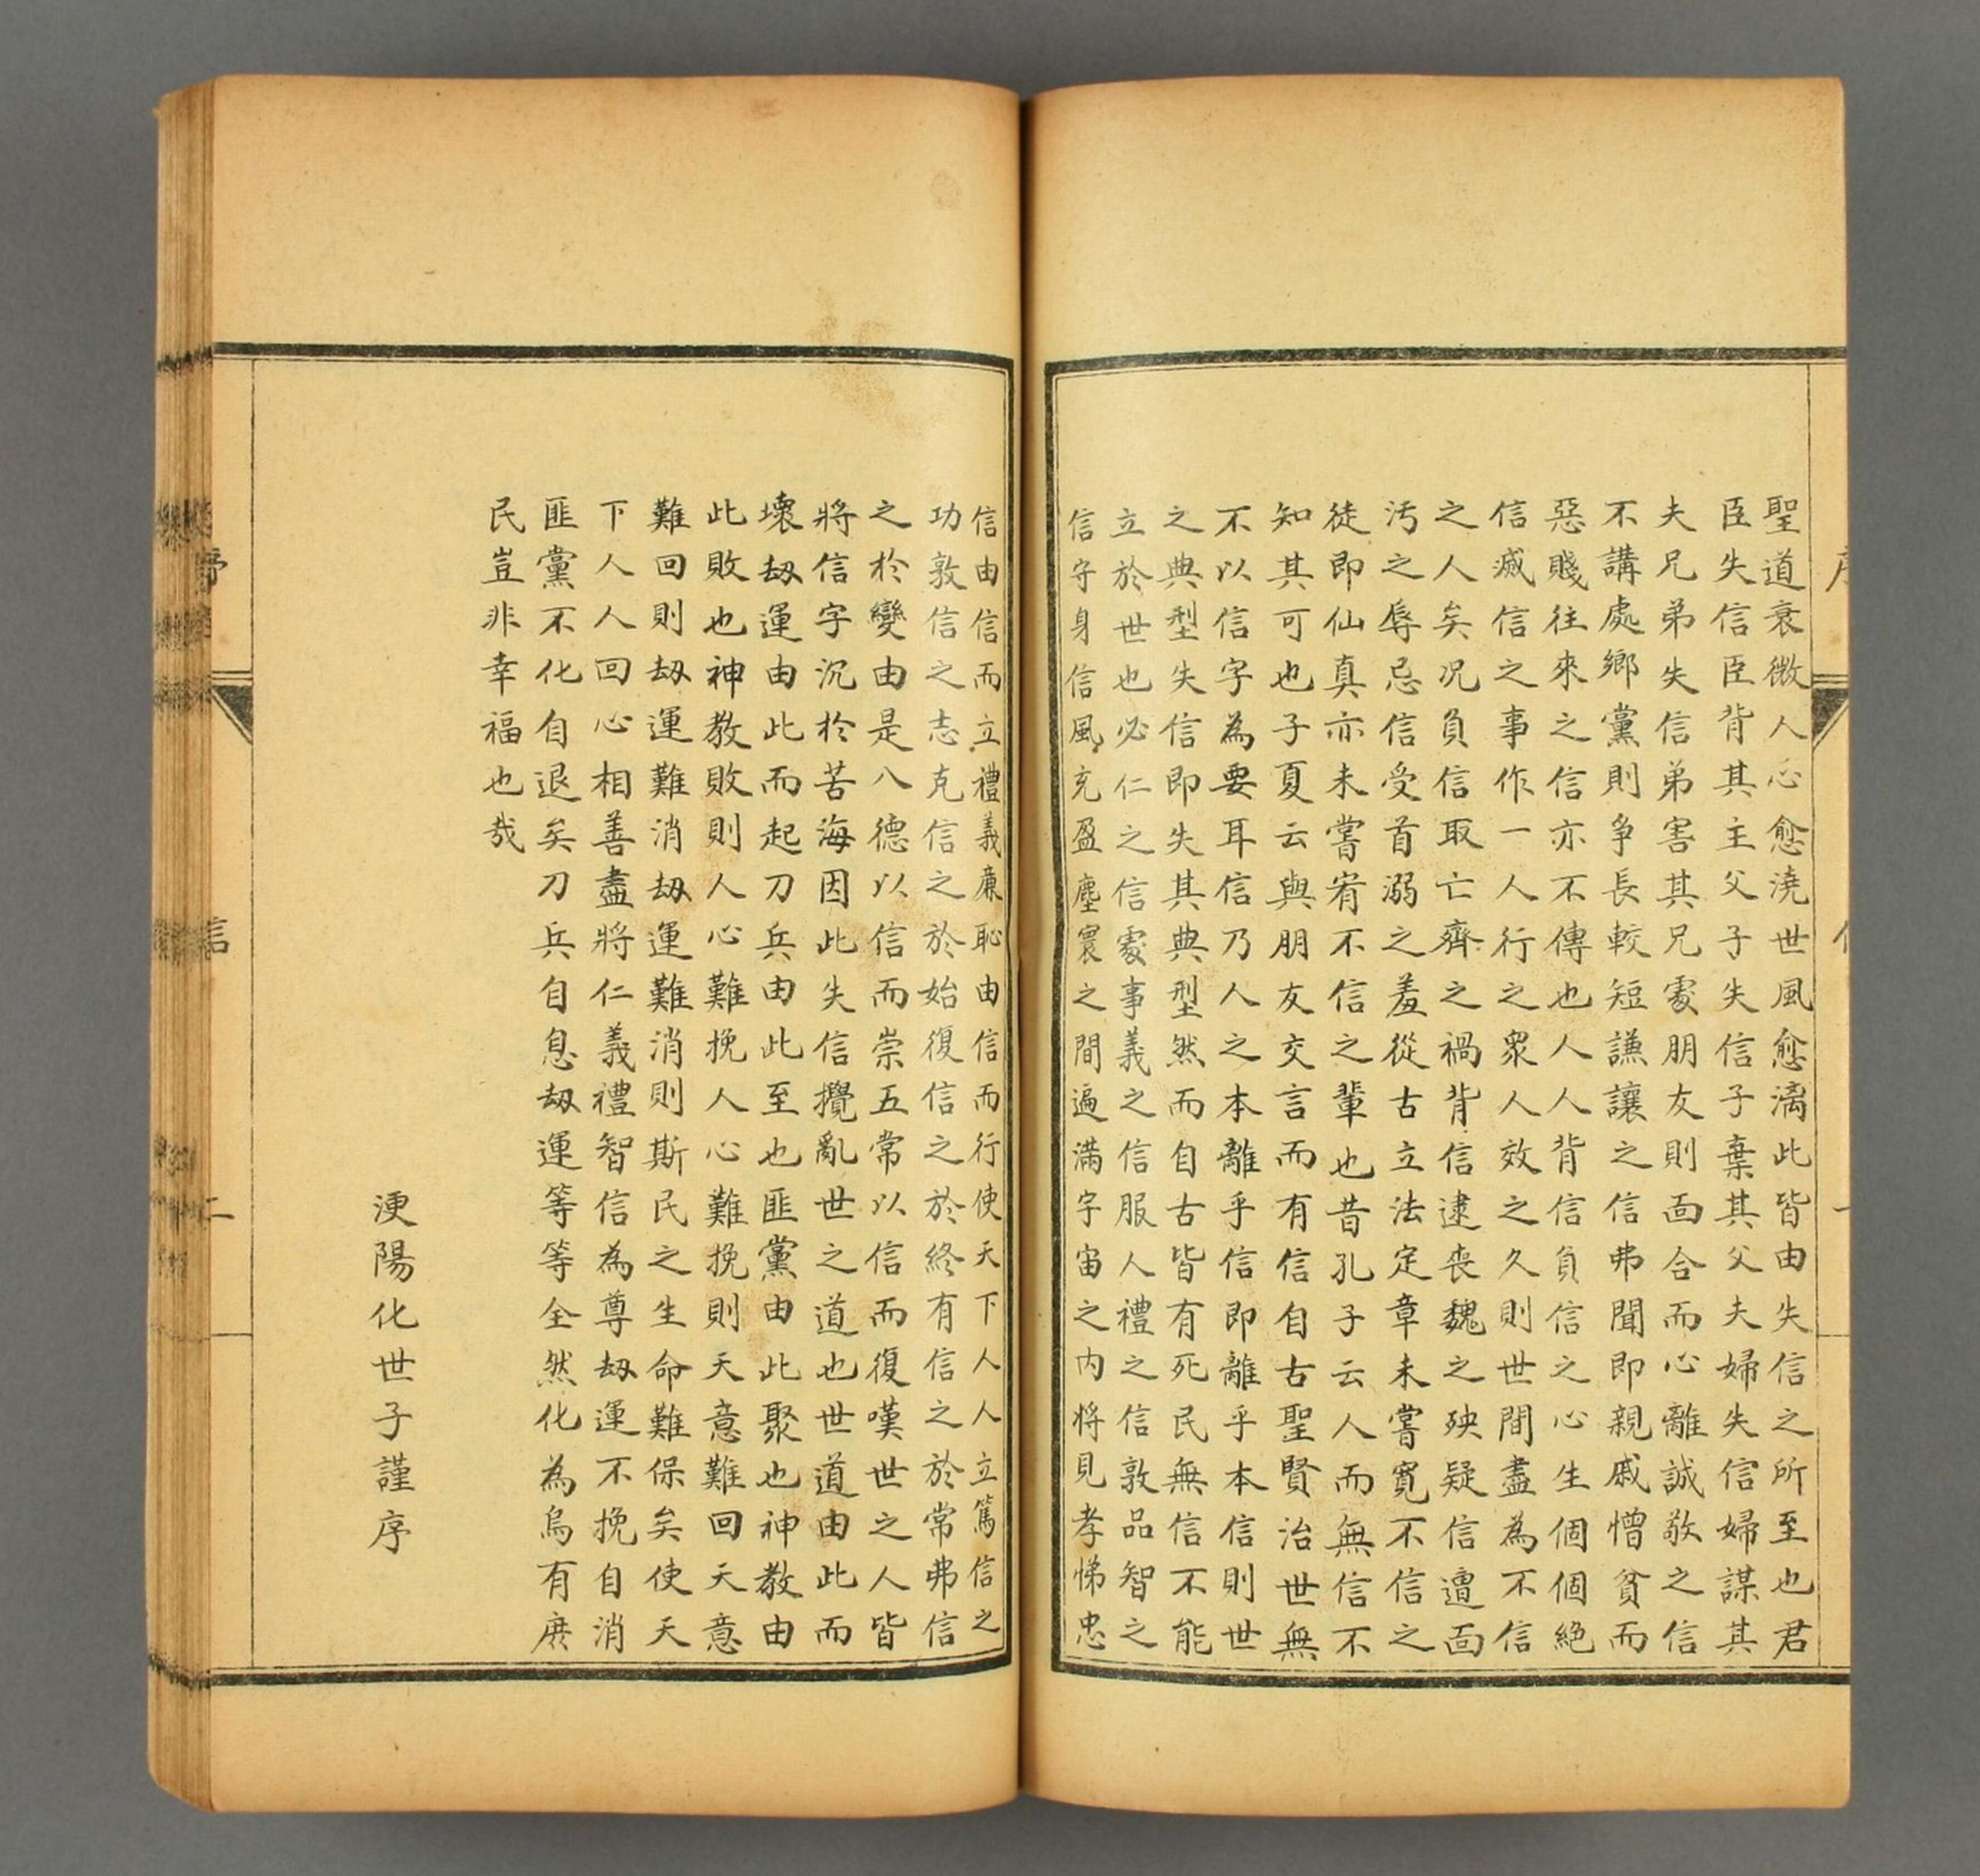 聖道衰微人心愈澆世風愈漓此皆由失信之所至也君
臣失信臣背其主父子失信子棄其父夫婦失信婦謀其
夫兄弟失信弟害其兄處朋友則面合而心離誠敬之信
不講處鄉黨則爭長較短謙讓之信弗聞即親戚憎貧而
惡賤往來之信亦不傳也人人背信負信之心生個個絕
信滅信之事作一人行之眾人效之久則世間盡為不信
之人矣况負信取亡齊之禍背信逮喪魏之殃疑信遭面
汚之辱忌信受首溺之羞從古立法定章未嘗寬不信之
徒即仙真亦未嘗宥不信之輩也昔孔子云人而無信不
知其可也子夏云與朋友交言而有信自古聖賢治世無
不以信字為要耳信乃人之本離乎信即離乎本信則世
之典型失信即失其典型然而自古皆有死民無信不能
立於世也必仁之信處事義之信服人禮之信敦品智之
信守身信風充盈塵寰之間遍满字宙之内将見孝悌忠
信由信而立禮義廉恥由信而行使天下人人立篤信之
功敦信之志克信之於始復信之於終有信之於常弗信
之於變由是八德以信而崇五常以信而復嘆世之人皆
將信字沉於苦海因此失信攪亂世之道也世道由此而
壞劫運由此而起刀兵由此至也匪黨由此聚也神教由
此敗也神教敗則人心難挽人心難挽則天意難回天意
難回則劫運難消劫運難消則斯民之生命難保矣使天
下人人回心相善盡將仁義禮智信為尊劫運不挽自消
匪黨不化自退矣刀兵自息劫運等等全然化為烏有庶
民豈非幸福也哉
浭陽化世子謹序
序
信
二